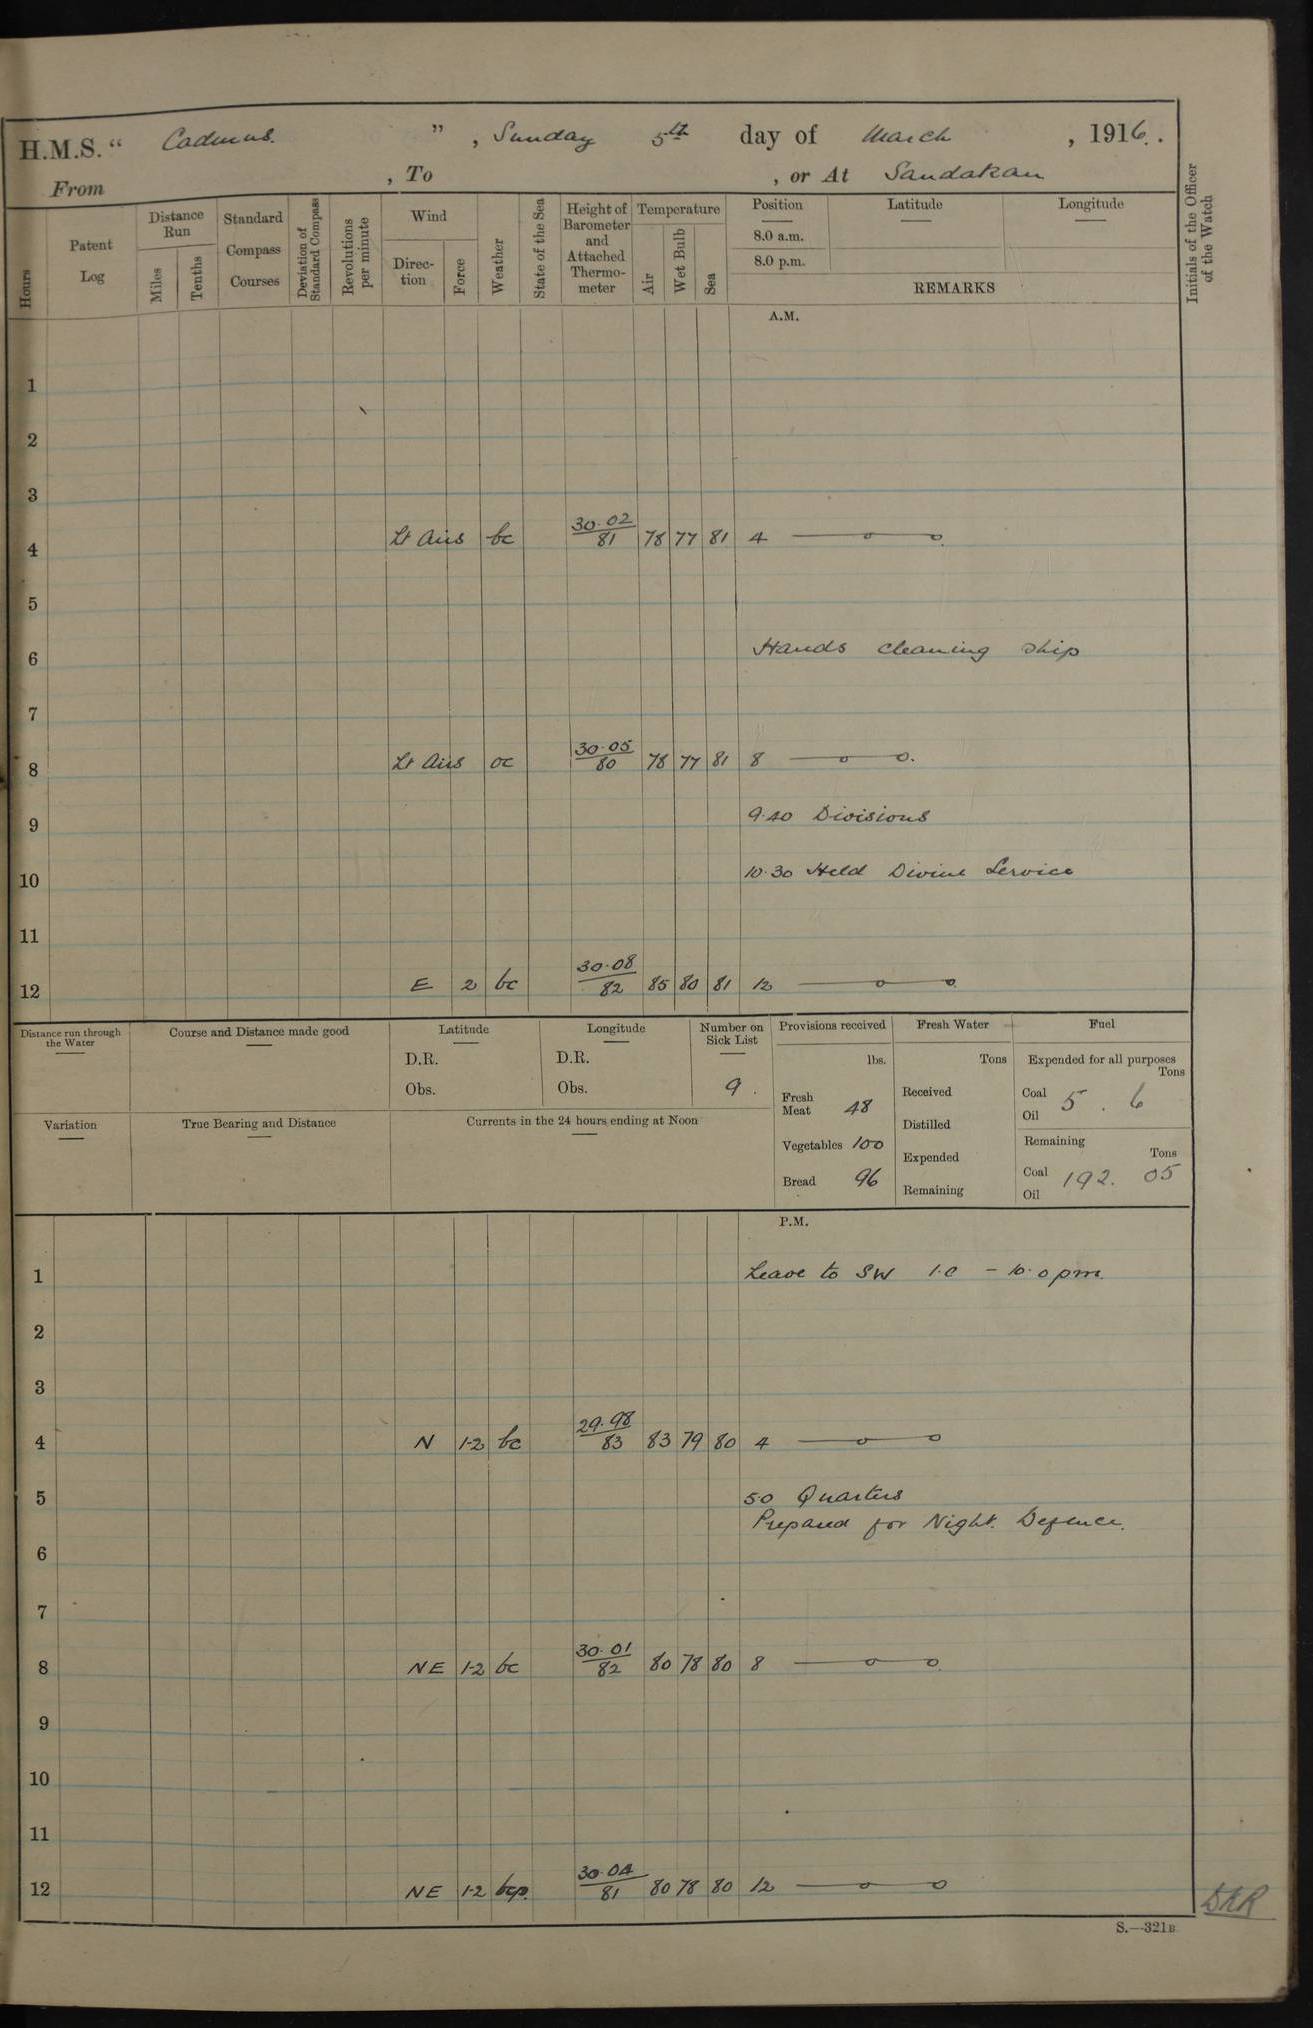 H.M.S. “ Cadmus. ” , Sunday 5th day of March , 1916.
From , To , or At Sandakan
Hours
Patent Log
Distance Run
Miles
Tenths
Standard Compass Courses
Deviation of Standard Compass
Revolutions per minute
Wind
Direction
Force
Weather
State of the Sea
Height of Barometer and Attached Thermometer
Temperature
Air
Wet Bulb
Sea
Position
8.0 a.m.
8.0 p.m.
Latitude
Longitude
REMARKS
Initials of the Officer of the Watch
A.M.
1
2
3
4 Lt Airs bc 30.02/81 78 77 81 4
5
6 Hands cleaning ship
7
8 Lt Airs oc 30.05/80 78 77 81 8
9 9.40 Divisions
10 10.30 Held Divine Service
11
12 E 2 bc 30.08/82 85 80 81 12
Distance run through the Water
Course and Distance made good
Latitude
D.R.
Obs.
Longitude
D.R.
Obs.
Number on Sick List
9.
Provisions received
lbs.
Fresh Meat 48
Vegetables 100
Bread 96
Fresh Water
Tons
Received
Distilled
Expended
Remaining
Fuel
Expended for all purposes
Tons
Coal
Oil
5 . 6
Remaining
Tons
Coal
Oil
192. 05
Variation
True Bearing and Distance
Currents in the 24 hours ending at Noon
P.M.
1 Leave to SW 1.0 - 10.0 pm.
2
3
4 N 1-2 bc 29.98/83 83 79 80 4
5 5.0 Quarters
Prepared for Night Defence.
6
7
8 NE 1-2 bc 30.01/82 80 78 80 8
9
10
11
12 NE 1-2 bcp. 30.04/81 80 78 80 12
S.—321B